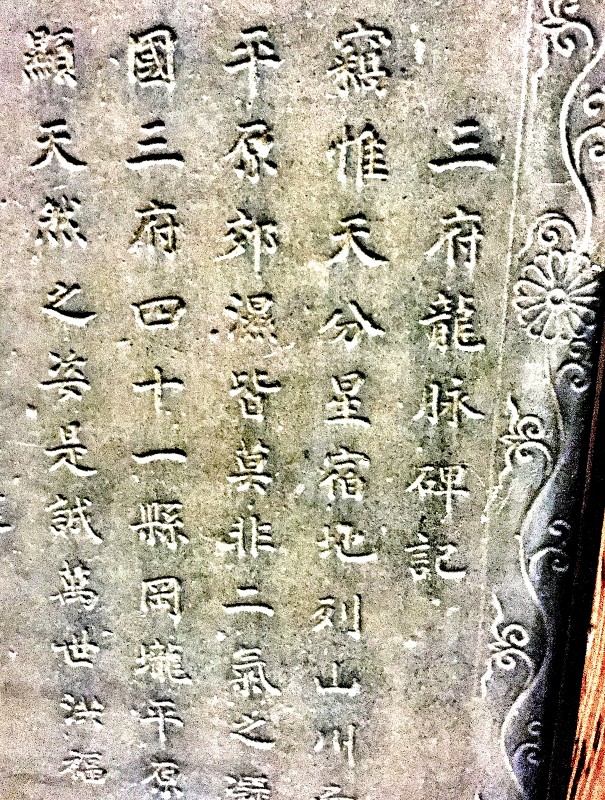 三府龍脉碑記
竊惟天分星宿地列山川
平原郊濕皆莫非二氣之凝
國三府四十一縣岡壠平原
顯天然之姿是誠萬世洪福